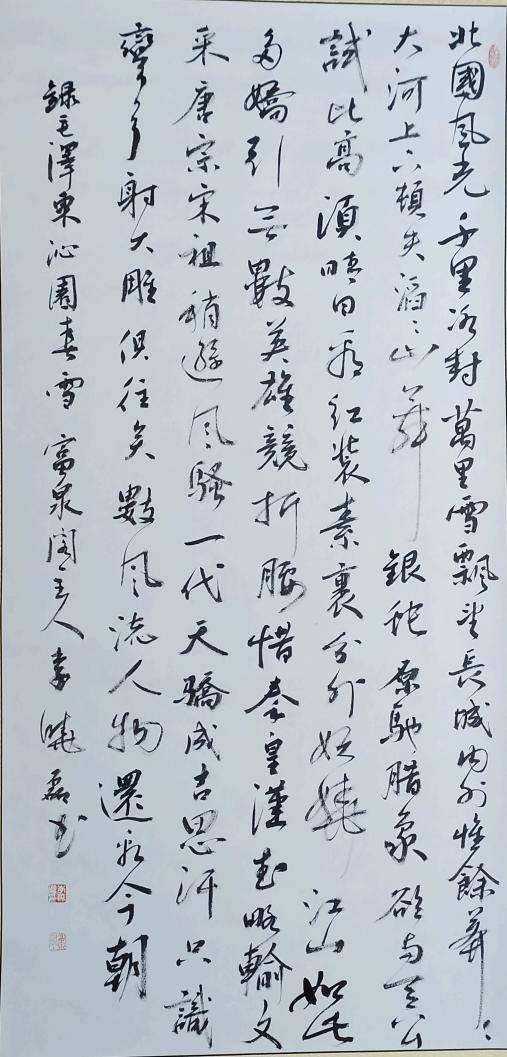 北國風光千里冰封萬里雪飄望長城內外惟餘莽〻
大河上下頓失滔〻山舞銀蛇原馳腊象欲與天公
試比高須晴日看紅裝素裹分外妖嬈江山如此
多嬌引無數英雄競折腰惜秦皇漢武略輸文
采唐宗宋祖稍遜風騷一代天驕成吉思汗只識
彎弓射大雕俱往矣數風流人物還看今朝
錄毛澤東沁園春雪 富泉閣主人李曉磊書